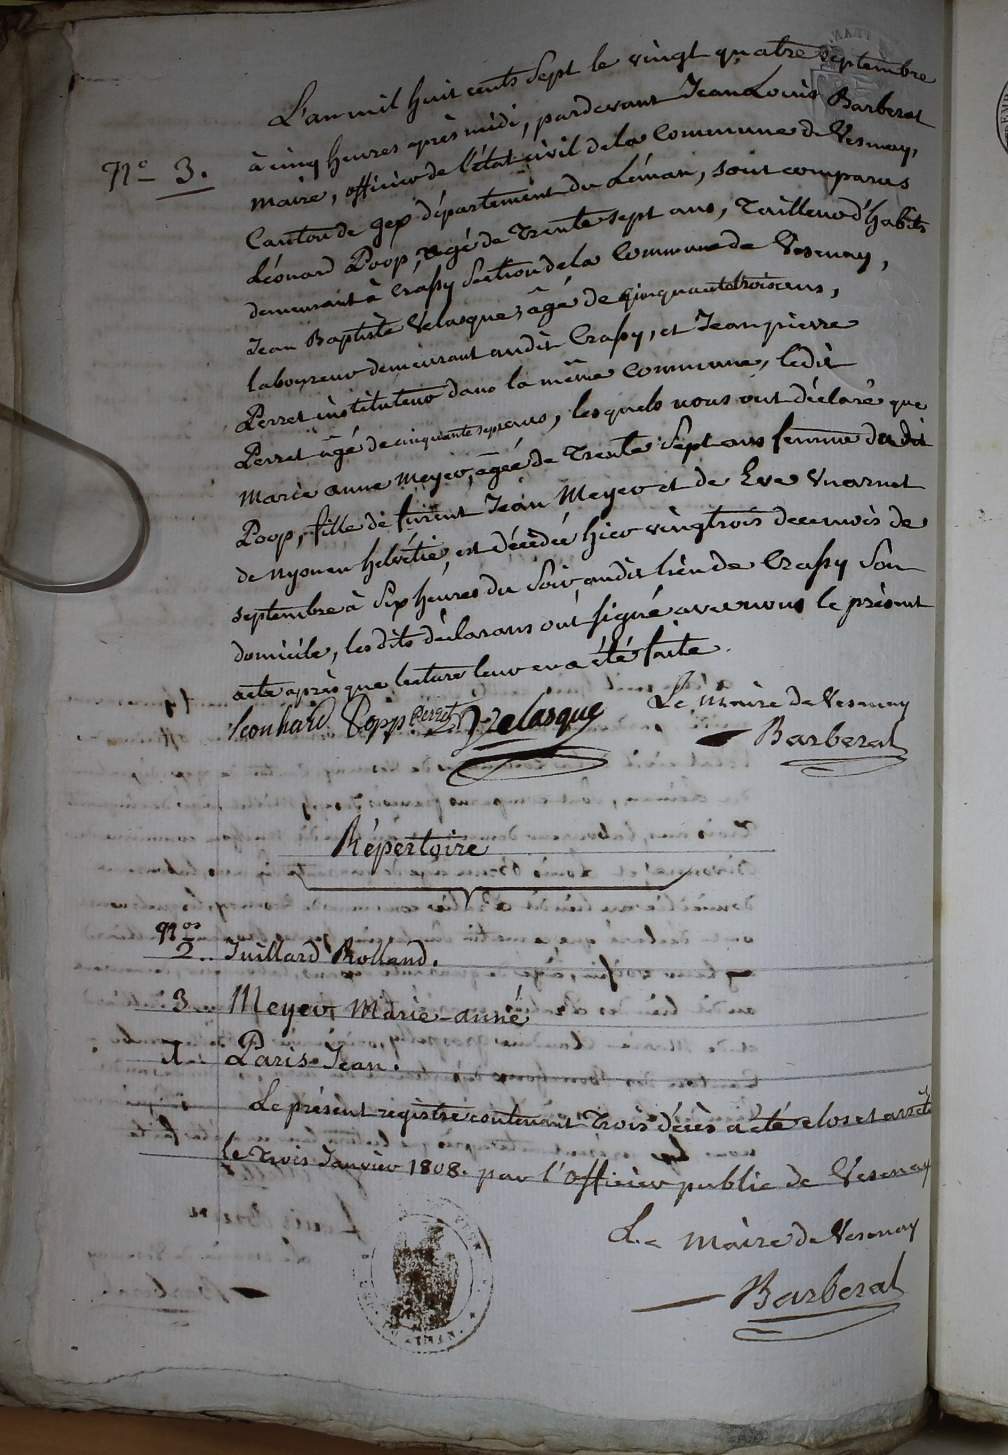 L'an mil huit cents sept le vingt quatre septembre
N° 3. à cinq heures après midi, pardevant Jean Louis Barberat
maire, officier de l'état civil de la Commune de Vesenay,
Canton de gex département du Léman, sont comparus
Léonard Poop, agé de Trente sept ans, Tailleur d'habits
demeurant à Crassy Section de la Commune de Vesenay,
Jean Baptiste Velasque, âgé de cinquante trois ans,
laboureur demeurant audit Crassy, et Jean pierre
Perret instituteur dans la même Commune, ledit
Perret âgé de cinquante sept ans, lesquels nous ont déclaré que
Marie anne Meyer, âgée de Trente Sept ans femme du dit
Poop, fille de furent Jean Meyer et de Eve Vuarnet
de Nyon en helvétie, est décédée hier vingt trois de ce mois de
septembre à Six heures du Soir, audit lieu de Crassy Son
domicile, les dits déclarans ont signé avec nous le présent
acte après que lecture leur en a été faite.
Leonhard Popp Perret Velasque
Le maire de Vesenay
Barberat
Répertoire
Nos
2. Juillard Rolland.
3. Meyer Marie-anne
1. Paris Jean.
Le présent registre contenant Trois décès a été clos et arrêté
le Trois Janvier 1808. par l'officier public de Vesenay
Le Maire de Vesenay
Barberat